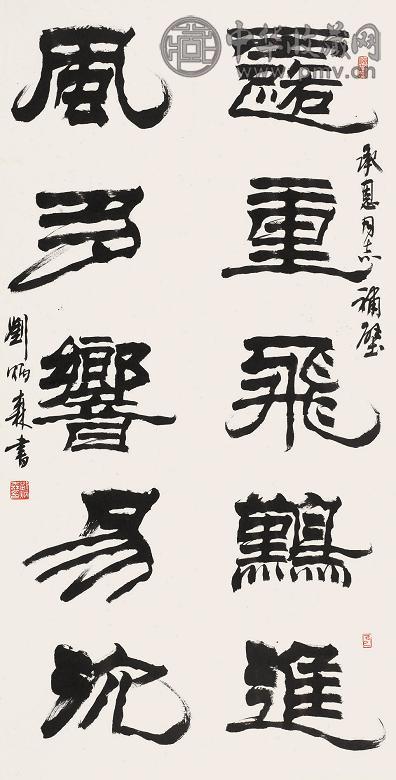 中华收藏网
www.pmv.cn
承恩同志補壁
露重飛難進
風多響易沈
劉炳森書